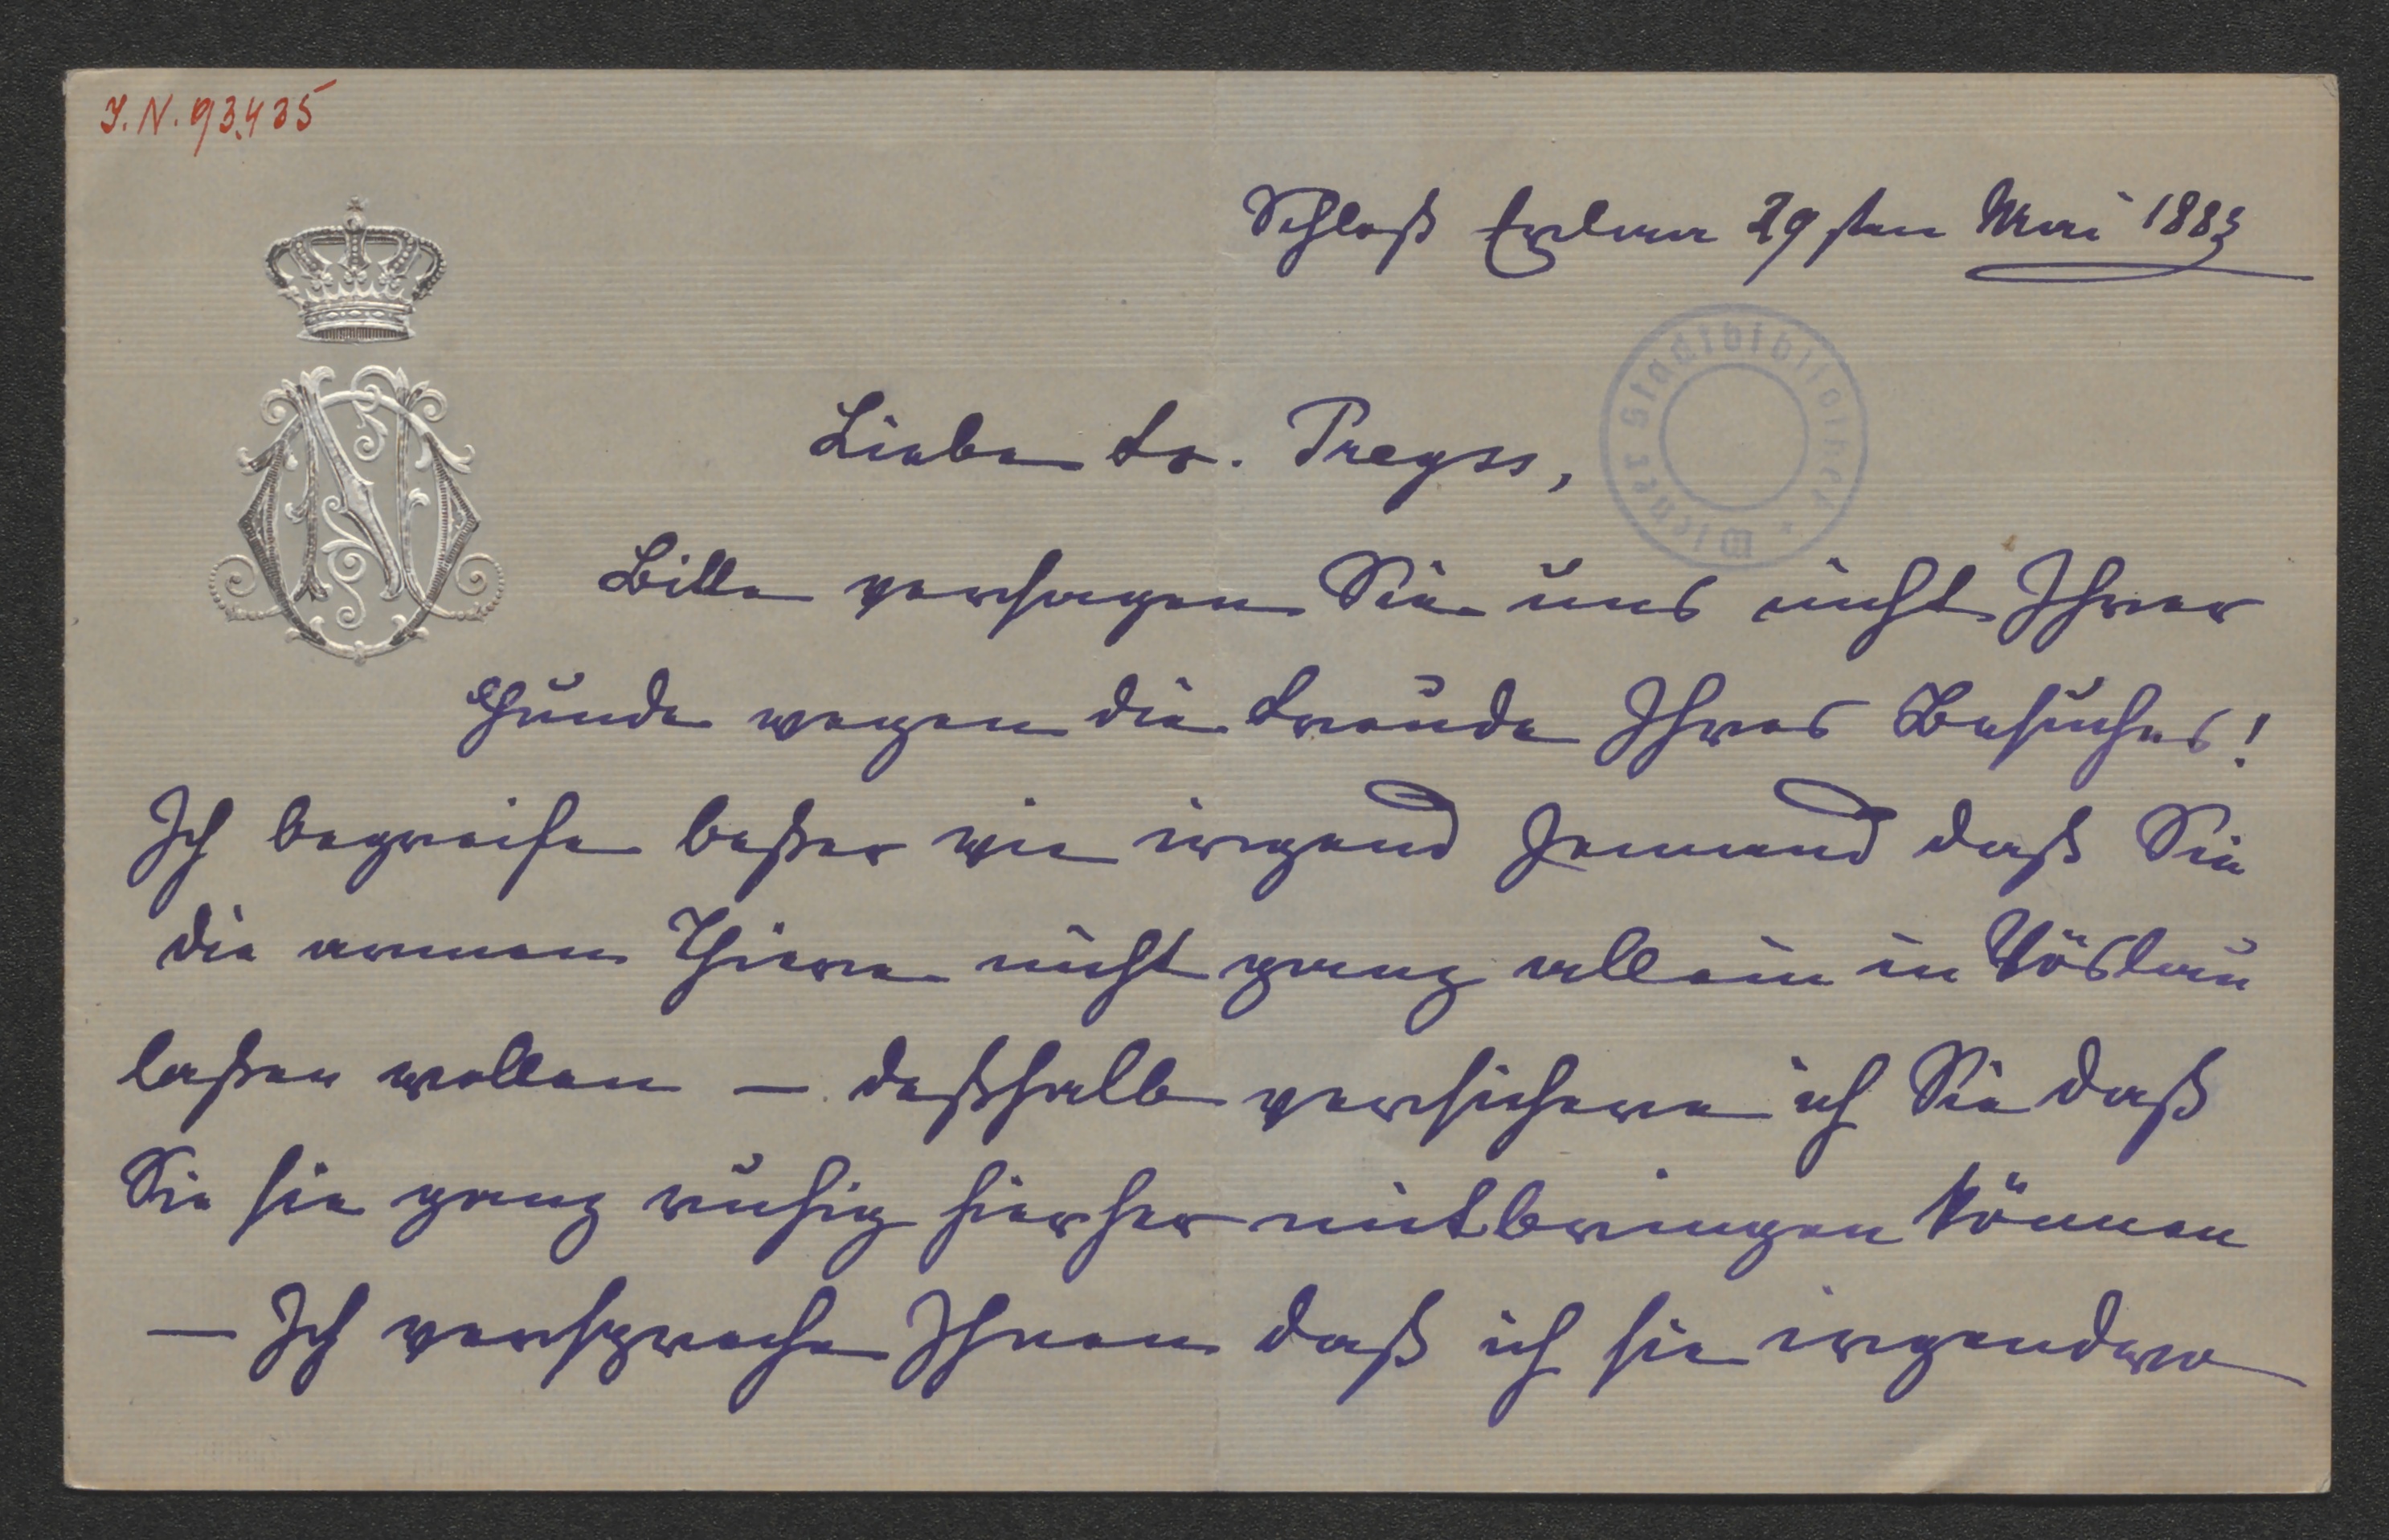 J.N. 93.435
Schloß Erlaa 29sten Mai 1883
Wiener Stadtbibliothek
Liebe Fr. Preyss,
Bitte versagen Sie uns nicht Ihrer
Hunde wegen die Freude Ihres Besuches!
Ich begreife beßer wie irgend Jemand daß Sie
die armen Thiere nicht ganz allein in Vöslau
laßen wollen – deßhalb versichere ich Sie daß
Sie sie ganz ruhig hierher mitbringen können
– Ich verspreche Ihnen daß ich sie irgendwo